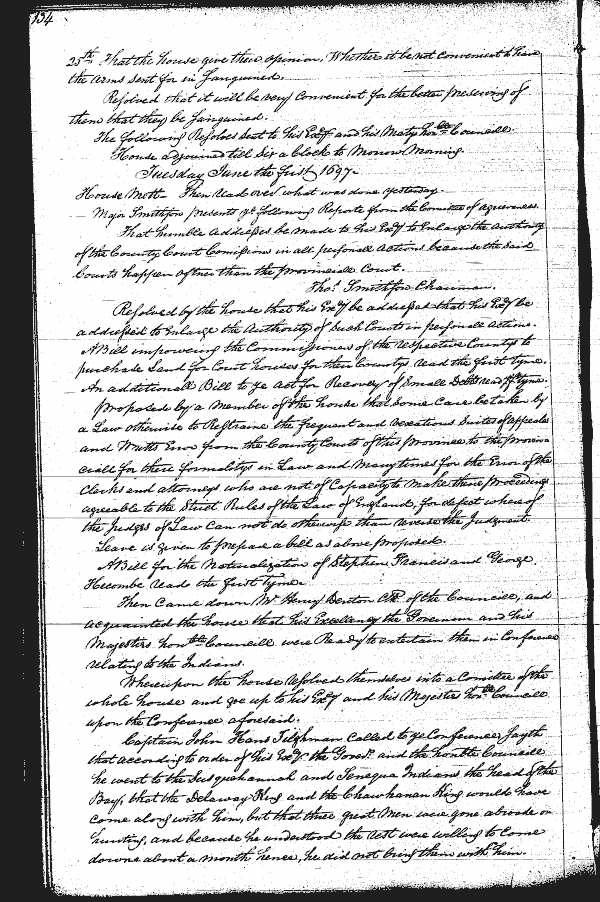 134
25th That the house give their opinion Whether it be not convenient to have
the Arms sent for in Janquined.
Resolved that it will be very Convenient for the better preserving of
them that they be Janquined.
The following Resolves sent to his Exy and his Matys honble Councill.
House adjourned till Six a Clock to Morrow Morning
Tuesday June the first 1697.
House Mett. Then read over what was done yesterday.
Major Smithson presents ye following Reporte from the Comittee of agreivances.
That humble Addresses be made to his Exy to Enlarge the Authority
of the County Court Comissions in all personall Actions because the said
Courts happen oftner then the provinciall Court.
Tho: Smithson Chairman.
Resolved by the house that his Exy be addressed that his Exy be
addressed to Enlarge the Authority of such Courts in personall Actions.
A Bill impowering the Commissioners of the respective Countys to
purchase Land for Court houses for their Countys read the first tyme.
An additionall Bill to ye Act for Recovery of Small Debts read first tyme.
Proposed by a Member of the house that some Care be taken by
a Law otherwise to Restraine the frequent and Vexatious Suites of appeales
and Writts Error from the County Courts of this Province to the provin=
ciall for there formalitys in Law and Many times for the Error of the
Clerks and attorneys who are not of Capacity to Make there proceedings
agreeable to the Strict Rules of the Law of England, for defect whereof
the Judges of Law Can not do otherwise than reverse the Judgment.
Leave is given to prepare a bill as above proposed.
A Bill for the Naturalization of Stephen Francis and George
Hecombe reade the first tyme.
Then Came down Mr Henry Denton Clk of the Councill, and
acquainted the house that his Excellency the Governour and his
Majesters honble Councill were Ready to entertain them in Conference
relating to the Indians.
Whereupon the house resolved themselves into a Comittee of the
whole house and goe up to his Exy and his Majesters honble Councill
upon the Conference aforesaid.
Captain John Hans Tilghman Called to ye Conference, sayth
that according to order of his Exy the Goverr and the honble Councill
he went to the Susquahannah and Senequa Indians the head of the
Bay, that the Delaway King and the Chawhanan King would have
come along with him, but that their great Men were gone abroade on
hunting, and because he understood the rest were willing to Come
downe about a month hence, he did not bring them with him.